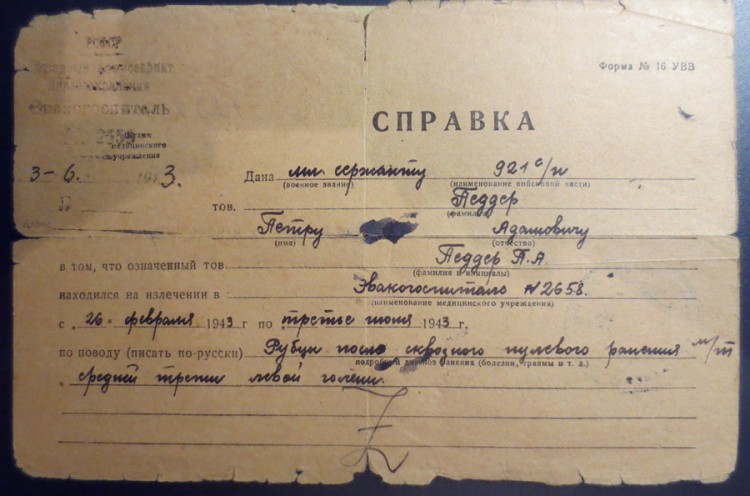 Эвакогоспиталь
медицинского
учреждения
Форма № 16 УВВ
СПРАВКА
3-6. 1943.
Дана мл. сержанту 921 с/п
(военное звание) (наименование войсковой части)
тов. Педдер
(фамилия)
Петру Адамовичу
(имя) (отчество)
в том, что означенный тов. Педдер П.А.
(фамилия и инициалы)
находился на излечении в Эвакогоспитале N 2658.
(наименование медицинского учреждения)
с „26" февраля 1943 г по третье июня 1943 г.
по поводу (писать по-русски) Рубцы после сквозного пулевого ранения м/т
подробный диагноз ранения (болезни, травмы и т. д.)
средней трети левой голени.